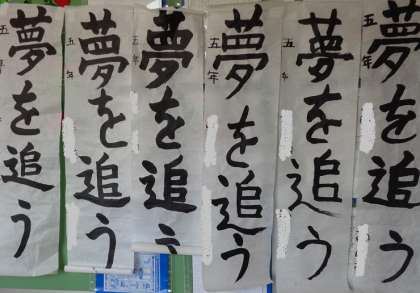 夢を追う
五年
夢を追う
五年
夢を追う
五年
夢を追う
五年
夢を追う
五年
夢を追う
五